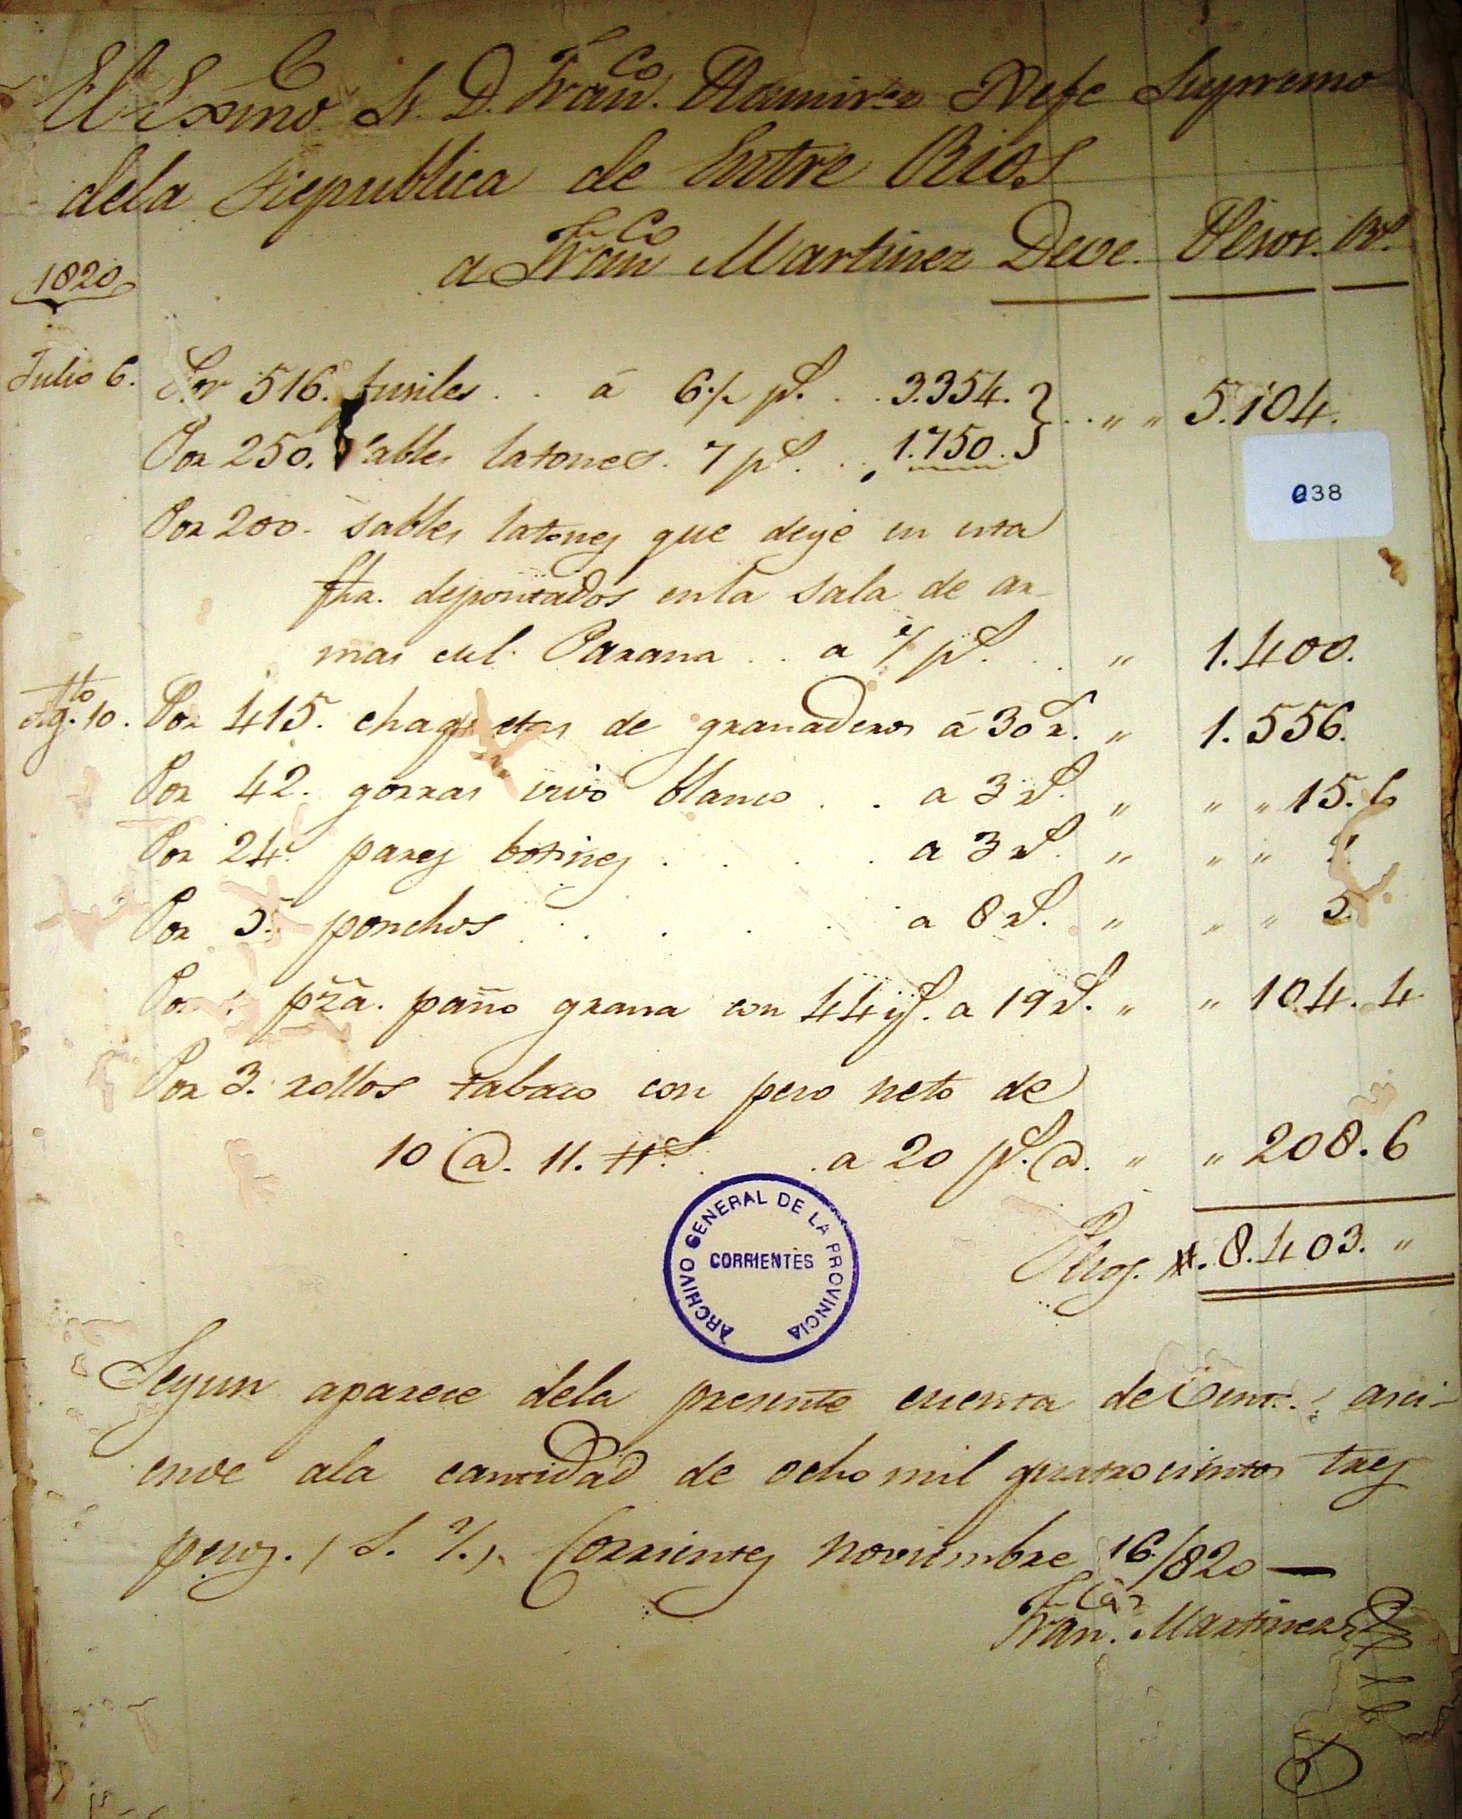 El Exmo Sr. D. Franco. Ramirez Xefe Supremo
dela Republica de Entre Rios
a Franco Martinez Deve. Pesos. Rs.
1820
Julio 6. Por 516. fusiles . . á 6 ½ ps. . . 3.354. } . . „ „ 5.104.
Por 250. sables latones. 7 ps. . . 1.750.
038
Por 200. sables latones que dejé en esta
fha. depocitados enla sala de ar-
mas del Parana . . a 7 ps. . . „ 1.400.
Agto. 10. Por 415. chaquetas de granaderos á 30 r. „ 1.556.
Por 42. gorras vivo blanco . . a 3 rs. „ „ „ 15.6
Por 24. pares botines . . . . a 3 rs. „ „ „
Por 5. ponchos . . . . . a 8 rs. „ „ „ 5.
Por 1. pza. paño grana con 44 ys. a 19 rs. „ „ 104. 4
Por 3. rollos tabaco con peso neto de
10 @. 11. ℔s. . a 20 ps. @. „ „ 208. 6
Pesos. 8.403. „
ARCHIVO GENERAL DE LA PROVINCIA
CORRIENTES
Segun aparece dela presente cuenta de asci-
ende ala cantidad de ocho mil quatrocientos tres
pesos. Corrientes Noviembre 16/820 —
Franco. Martinez